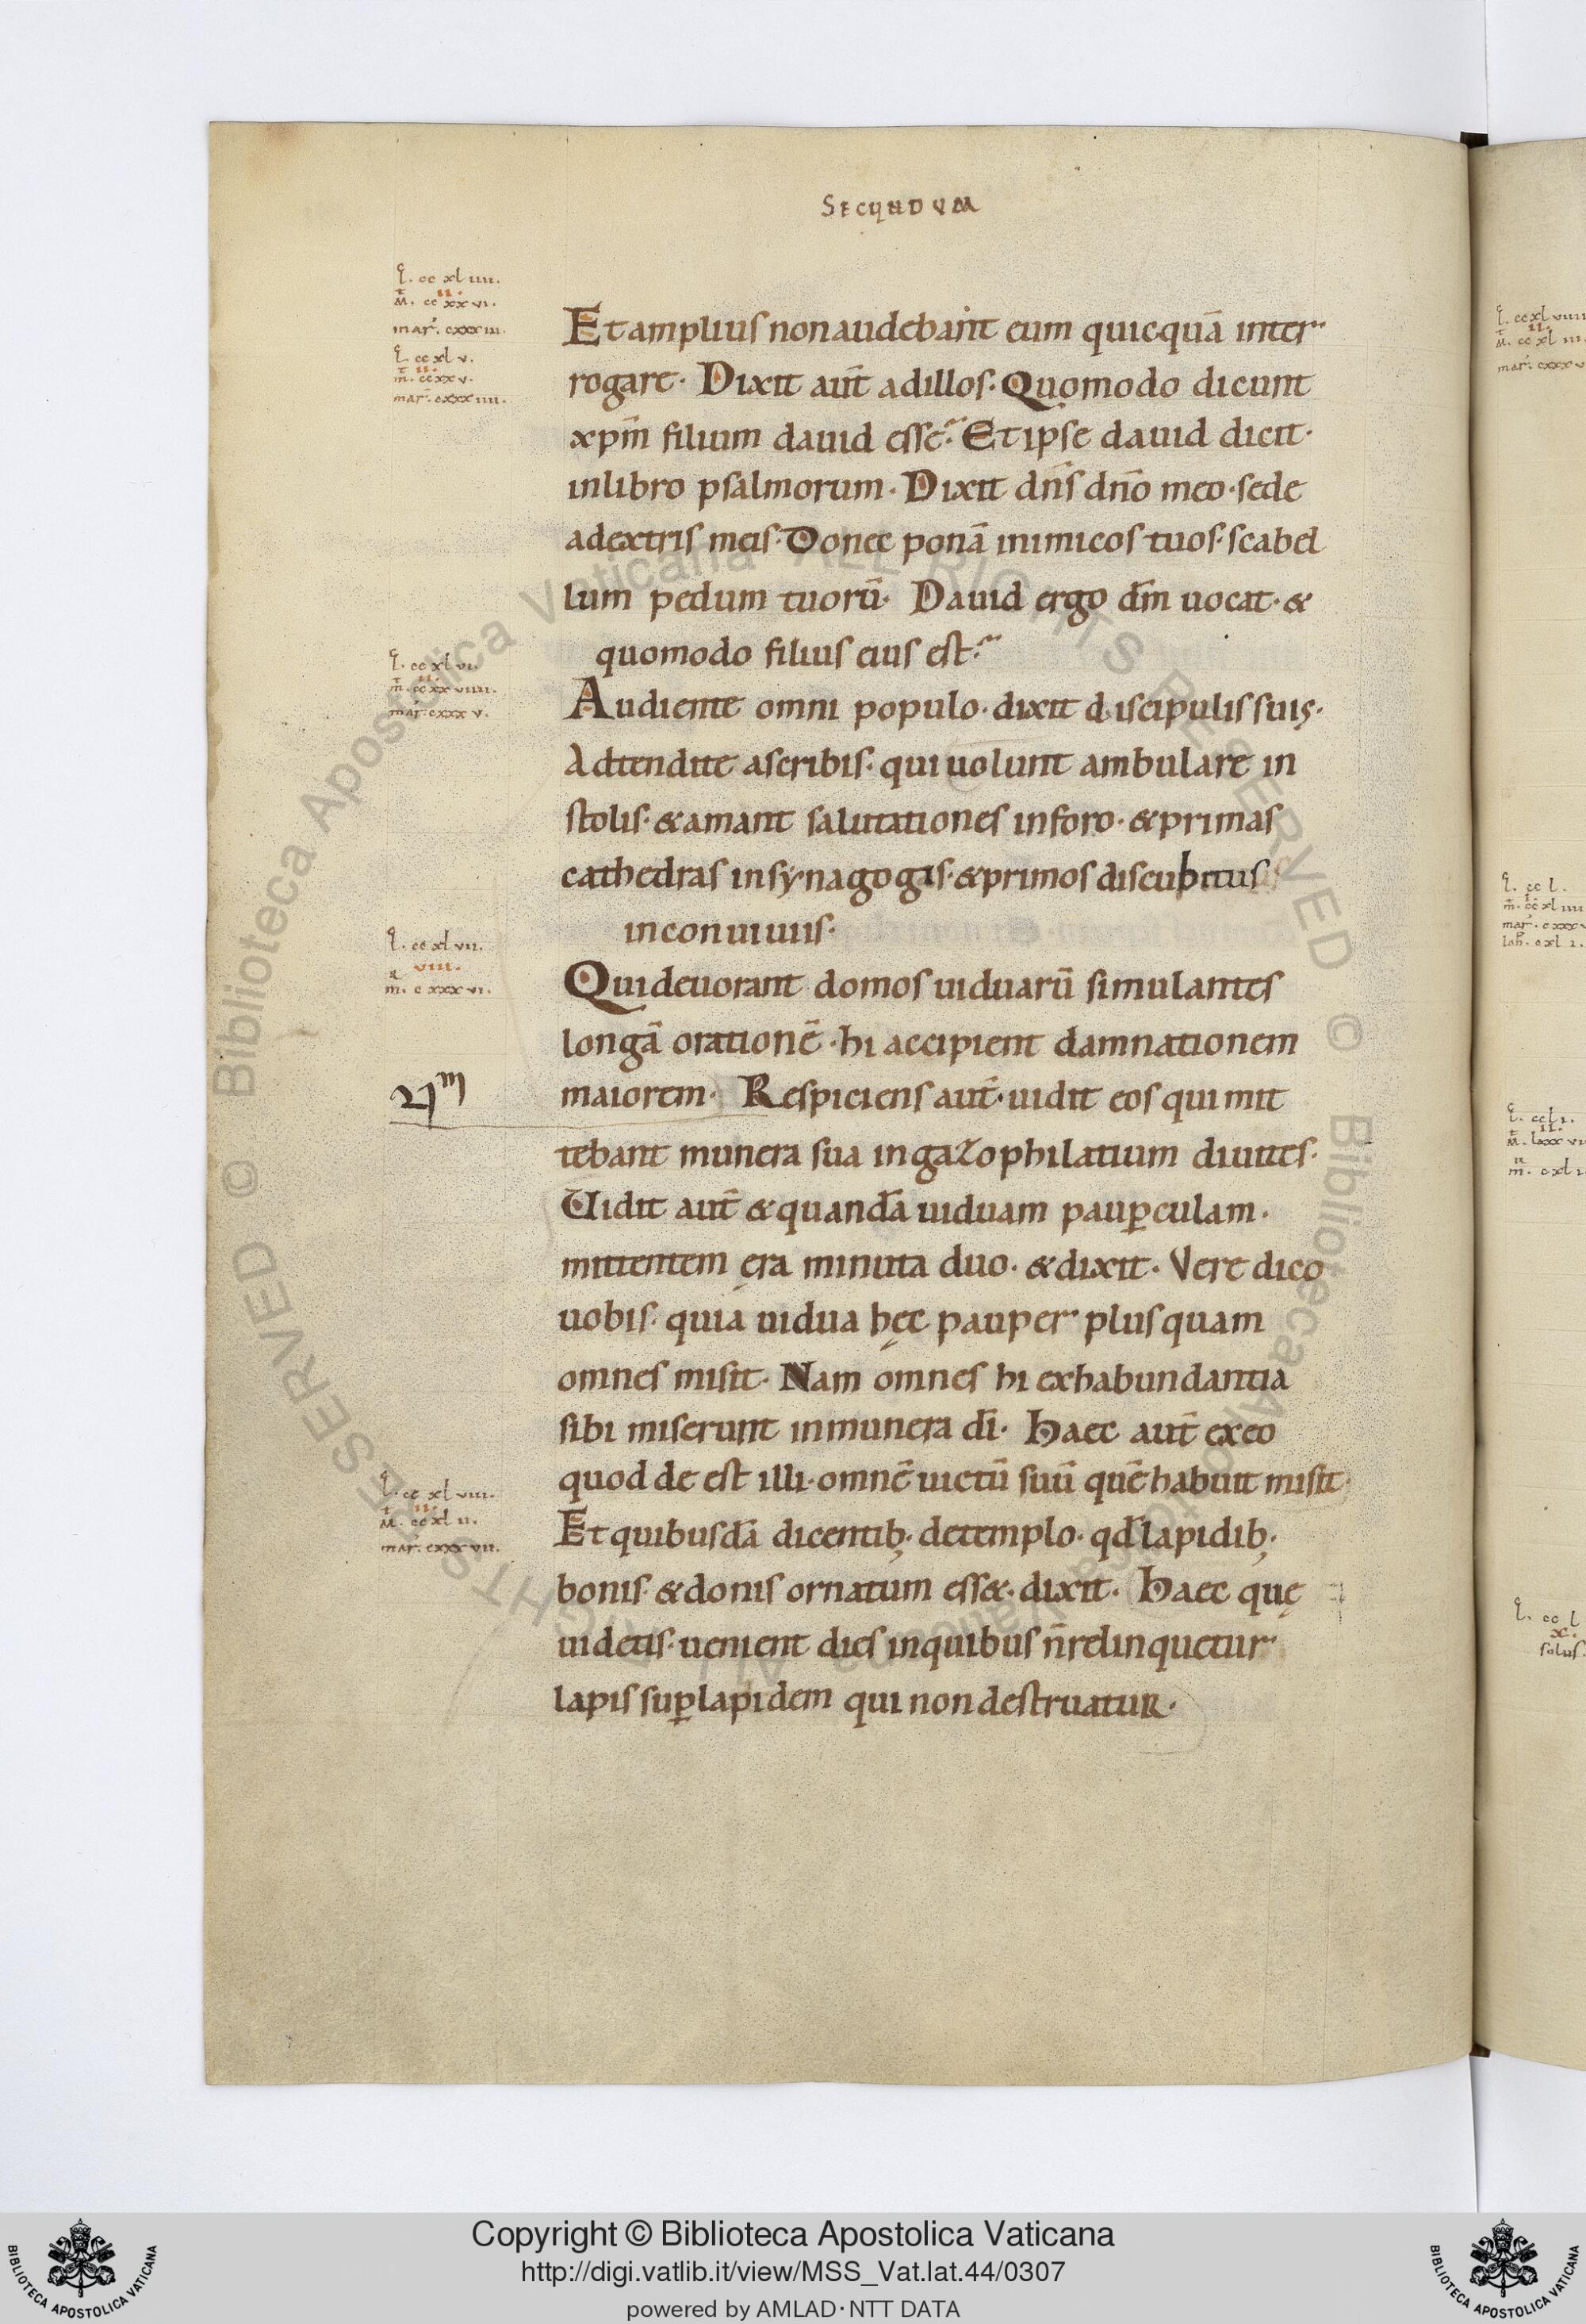 SECUNDUM
l. cc xl iiii.
ii.
m. cc xx vi.
mar. cxxx iii.
l. cc xl v.
ii.
m. cc xx v.
mar. cxxx iiii.
Et amplius non audebant eum quicquā inter
rogare. Dixit aut̄ ad illos. Quomodo dicunt
xpm̄ filium dauid esse. Et ipse dauid dicit.
in libro psalmorum. Dixit dn̄s dn̄o meo. sede
a dextris meis. Donec ponā inimicos tuos. scabel
lum pedum tuorū. Dauid ergo dm̄ uocat. &
quomodo filius eius est.
l. cc xl vi.
ii.
m. cc xx viiii.
mar. cxxx v.
Audiente omni populo. dixit discipulis suis.
Adtendite a scribis. qui uolunt ambulare in
stolis. & amant salutationes in foro. & primas
cathedras in synagogis. & primos discubitus
in conuiuiis.
l. cc xl vii.
viii.
m. c xxx vi.
Qui deuorant domos uiduarū simulantes
longā orationē. hi accipient damnationem
maiorem. Respiciens aut̄. uidit eos qui mit
tebant munera sua in gazophilatium diuites.
Uidit aut̄ & quandā uiduam paup̱culam.
mittentem ęra minuta duo. & dixit. Vere dico
uobis. quia uidua hęc pauper plus quam
omnes misit. Nam omnes hi ex habundantia
sibi miserunt in munera dī. Haec aut̄ ex eo
quod de est illi. omnē uictū suū quē habuit misit.
l. cc xl viii.
ii.
m. cc xl ii.
mar. cxxx vii.
Et quibusdā dicentib; de templo. qd̄ lapidib;
bonis. & donis ornatum ess&. dixit. Haec quę
uidetis. uenient dies in quibus n̄ relinquetur
lapis sup̱ lapidem qui non destruatur.
l. cc xl viiii
ii.
m. cc xl iii
mar. cxxx v
l. cc l.
m. cc xl iiii
mar. cxxx v
ioh. cxl i.
l. cc l i.
ii.
m. lxxx vi
m. cxl i
l. cc l
x.
solus.
© Biblioteca Apostolica Vaticana ALL RIGHTS RESERVED
Copyright © Biblioteca Apostolica Vaticana
http://digi.vatlib.it/view/MSS_Vat.lat.44/0307
powered by AMLAD·NTT DATA
BIBLIOTECA APOSTOLICA VATICANA
BIBLIOTECA APOSTOLICA VATICANA